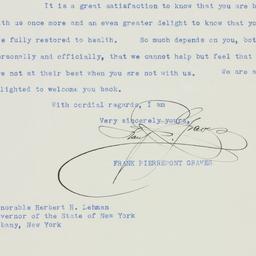 It is a great satisfaction to know that you are b
th us once more and an even greater delight to know that yo
e fully restored to health. So much depends on you, bot
ersonally and officially, that we cannot help but feel that
re not at their best when you are not with us. We are a
lighted to welcome you back.
With cordial regards, I am
Very sincerely yours,
Frank P. Graves
FRANK PIERREPONT GRAVES
norable Herbert H. Lehman
vernor of the State of New York
bany, New York